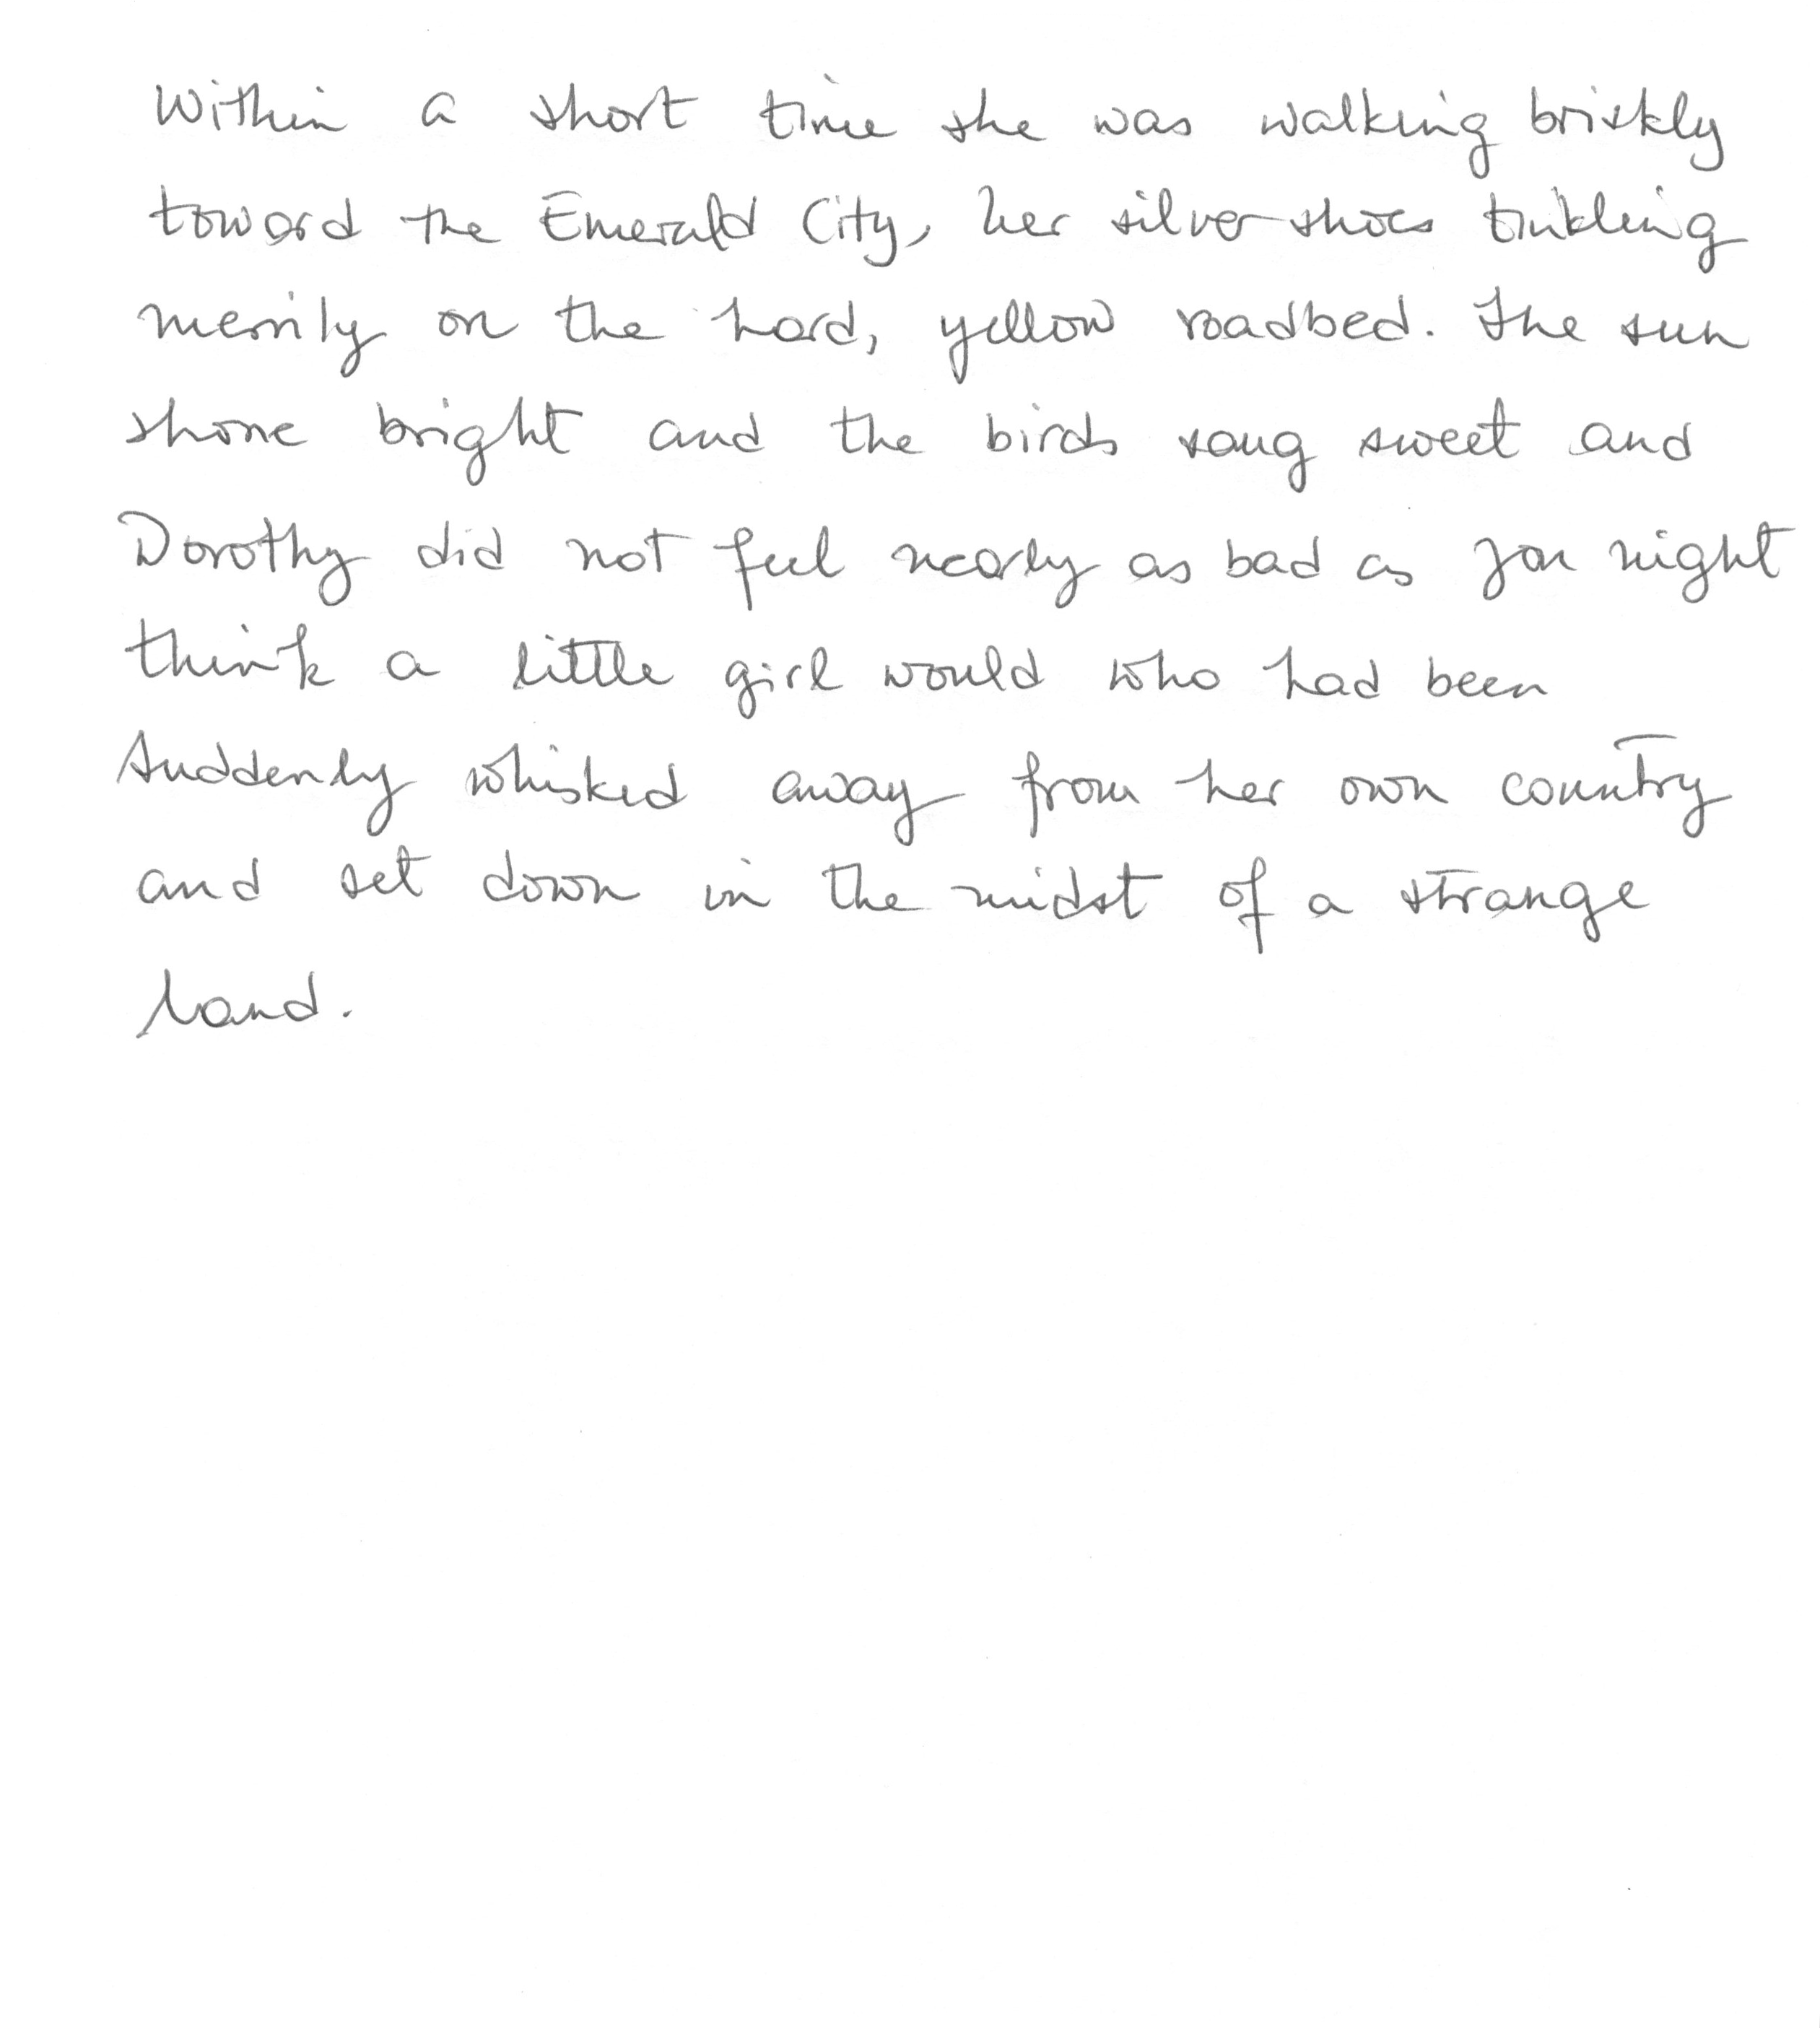 Within a short time she was walking briskly
toward the Emerald City, her silver shoes tinkling
merrily on the hard, yellow roadbed. The sun
shone bright and the birds sang sweet and
Dorothy did not feel nearly as bad as you might
think a little girl would who had been
suddenly whisked away from her own country
and set down in the midst of a strange
land.